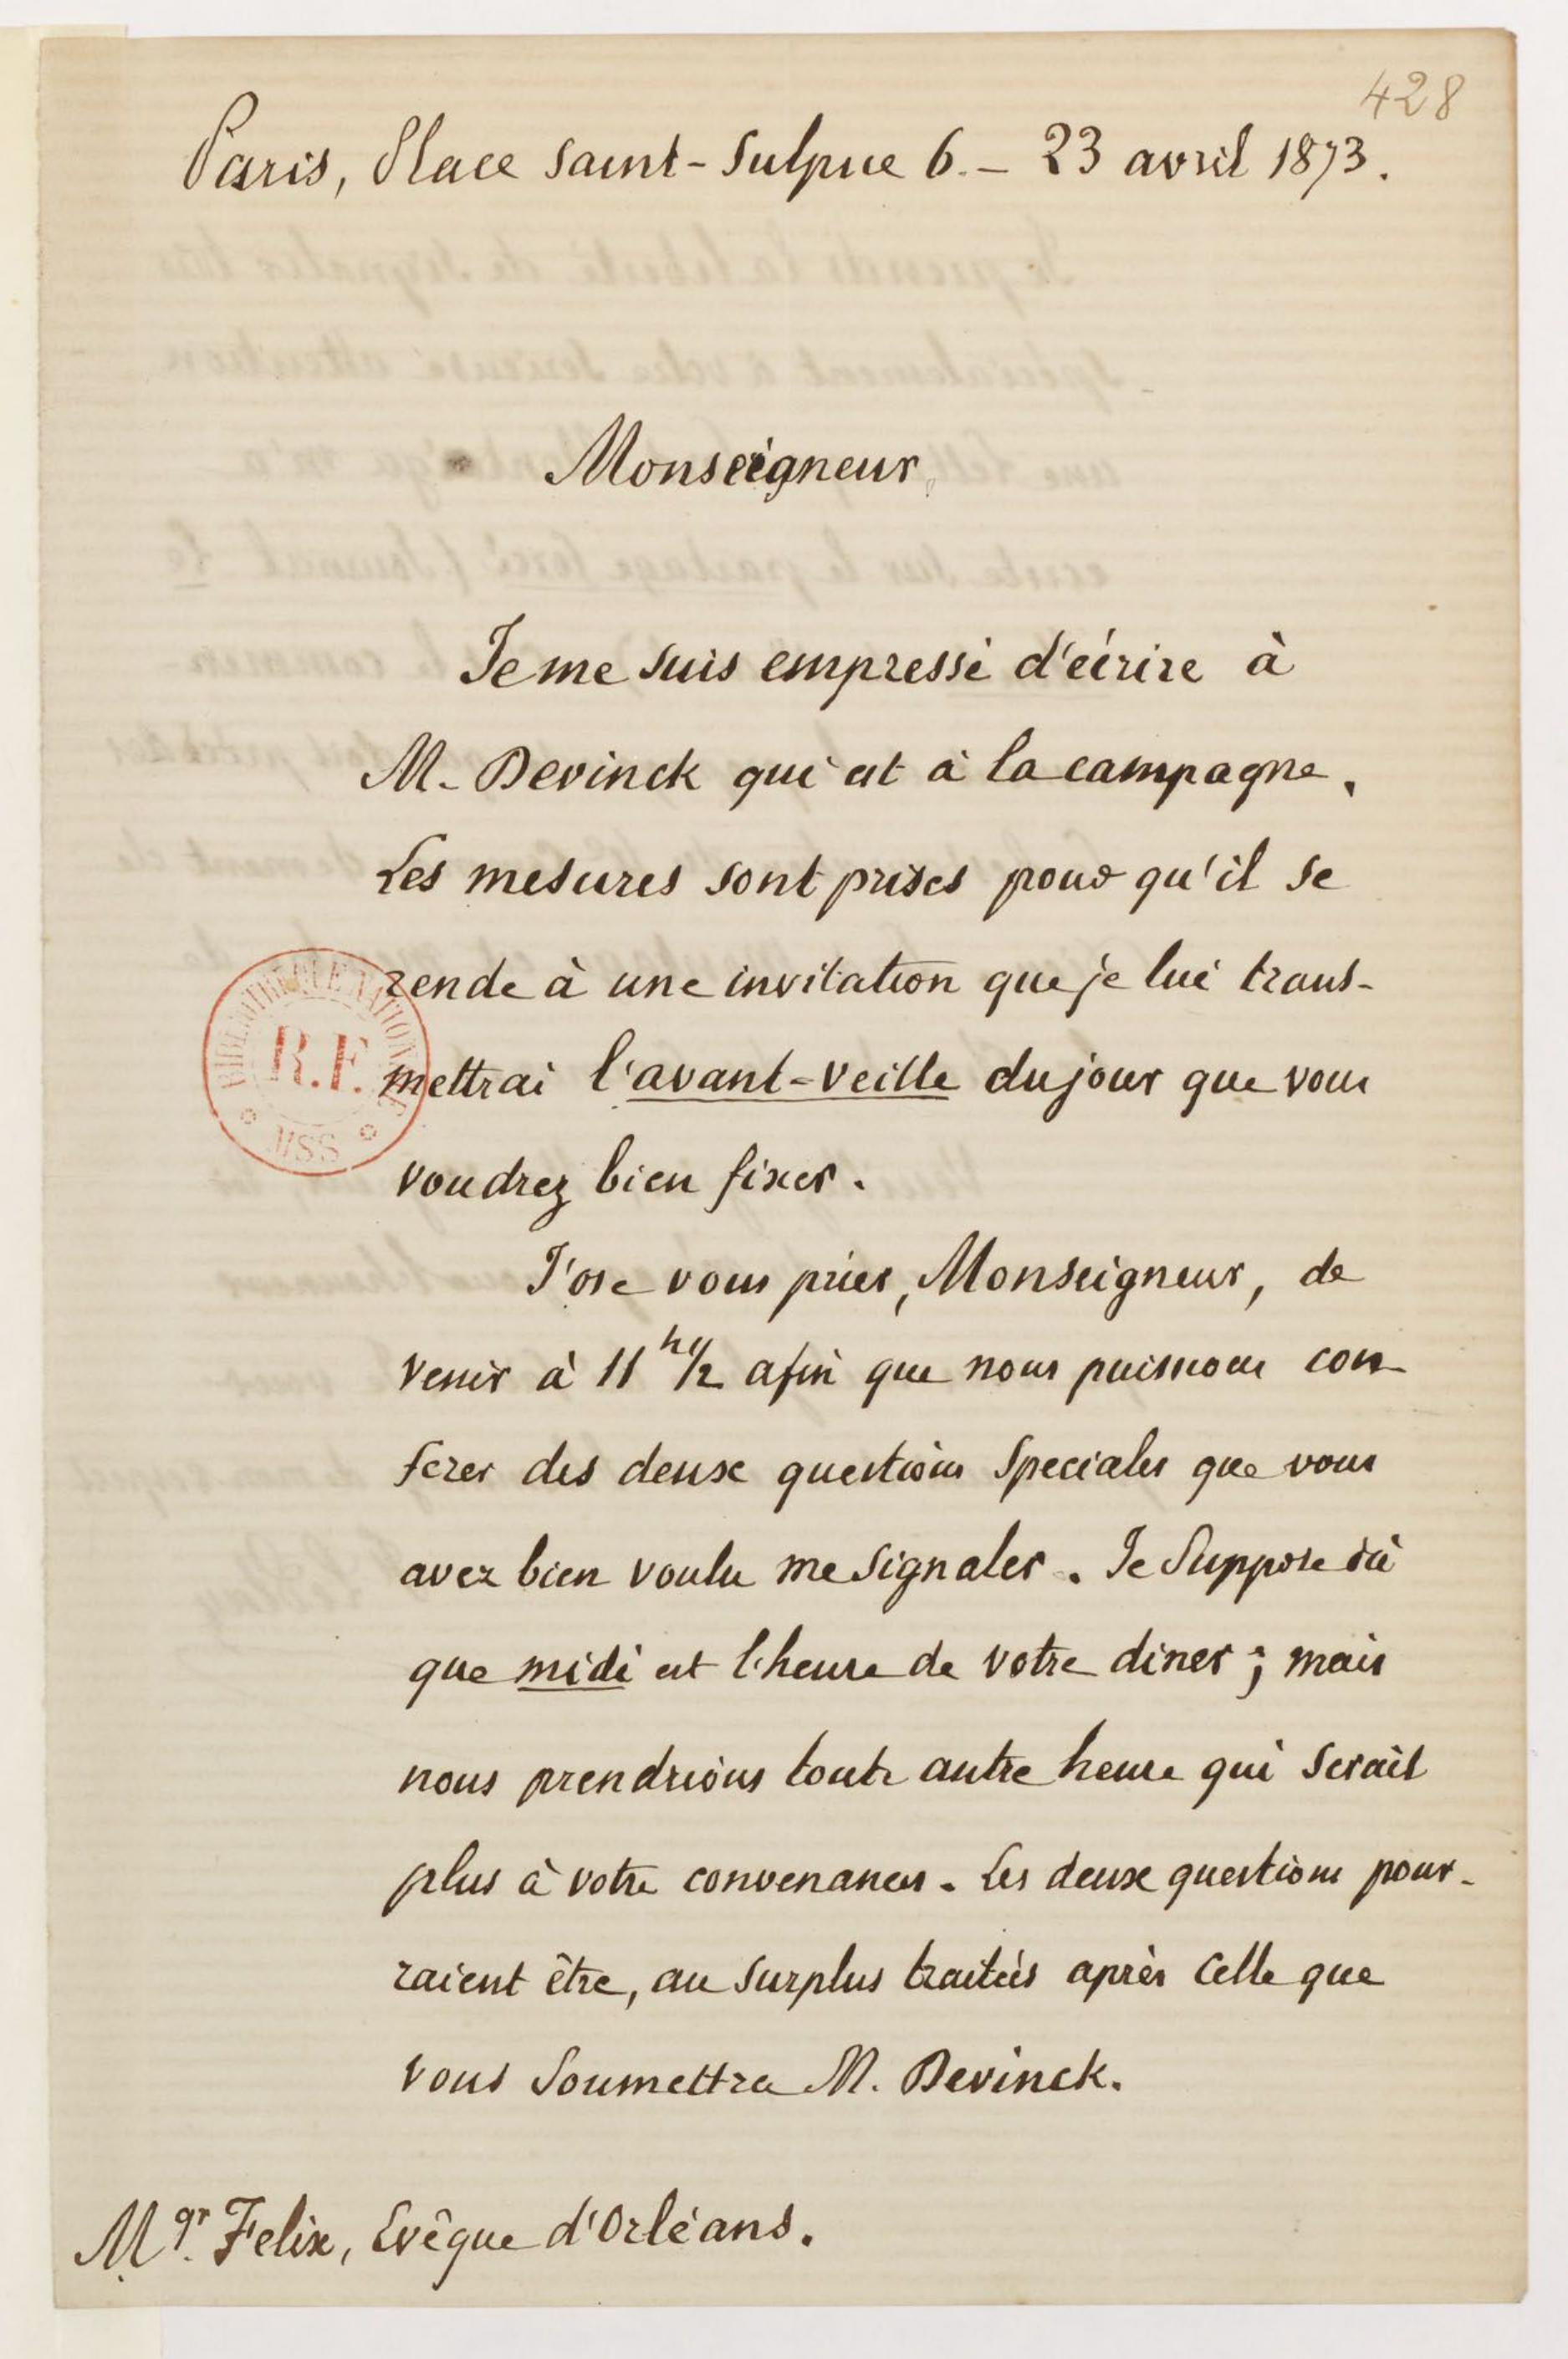 428
Paris, Place Saint-Sulpice 6. – 23 avril 1873.
Monseigneur,
Je me suis empressé d'écrire à
M. Devinck qui est à la campagne.
Les mesures sont prises pour qu'il se
rende à une invitation que je lui trans-
mettrai l'avant-veille du jour que vous
voudrez bien fixer.
J'ose vous prier, Monseigneur, de
venir à 11 h 1/2 afin que nous puissions con-
ferer des deux questions speciales que vous
avez bien voulu me signaler. Je suppose ici
que midi est l'heure de votre diner ; mais
nous prendrions toute autre heure qui serait
plus à votre convenances. Les deux questions pour-
raient être, au surplus traitées après celle que
vous soumettra M. Devinck.
Mgr. Felix, Evêque d'Orléans.
BIBLIOTHÈQUE NATIONALE
R.F.
MSS